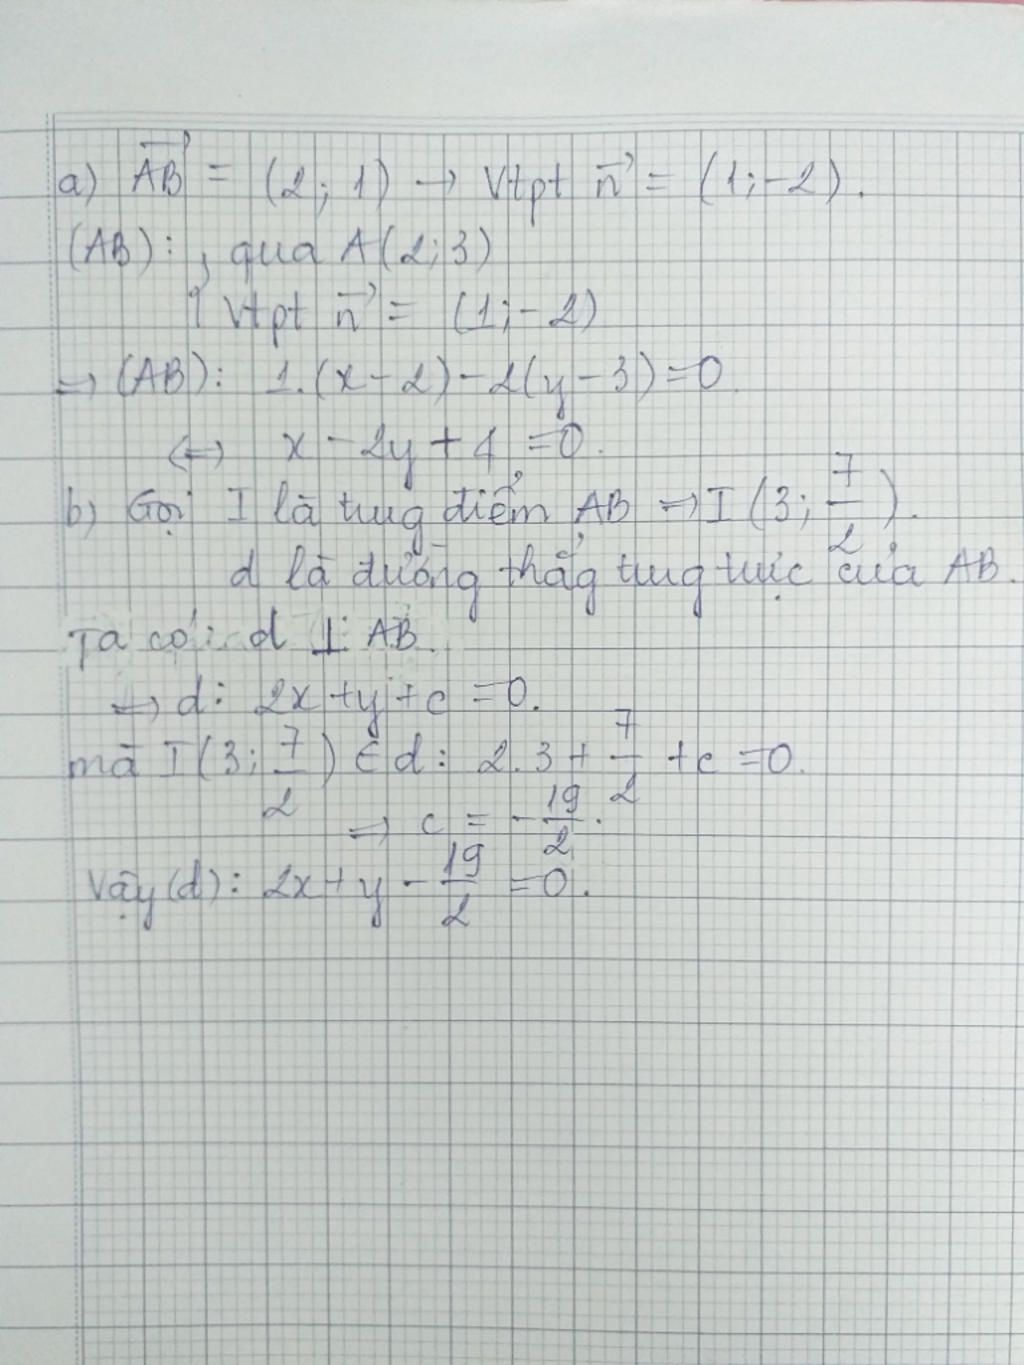 a) AB⃗ = (2; 1) → Vtpt n⃗ = (1; -2).
(AB): { qua A(2; 3)
Vtpt n⃗ = (1; -2)
⇒ (AB): 1.(x - 2) - 2(y - 3) = 0.
⇔ x - 2y + 4 = 0.
b) Gọi I là trug điểm AB ⇒ I (3; 7/2).
d là đường thẳg trug trực của AB.
Ta có: d ⊥ AB.
⇒ d: 2x + y + c = 0.
mà I (3; 7/2) ∈ d: 2.3 + 7/2 + c = 0.
⇒ c = - 19/2.
Vậy (d): 2x + y - 19/2 = 0.